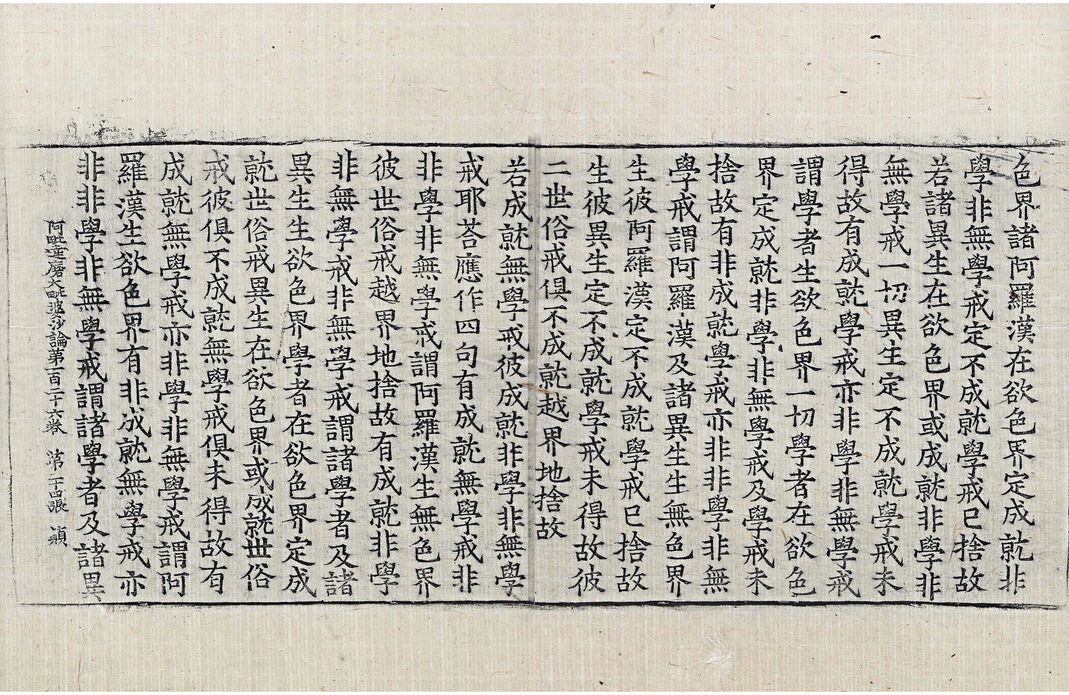 色界諸阿羅漢在欲色界定成就非
學非無學戒定不成就學戒已捨故
若諸異生在欲色界或成就非學非
無學戒一切異生定不成就學戒未
得故有成就學戒亦非學非無學戒
謂學者生欲色界一切學者在欲色
界定成就非學非無學戒及學戒未
捨故有非成就學戒亦非非學非無
學戒謂阿羅漢及諸異生生無色界
生彼阿羅漢定不成就學戒已捨故
生彼異生定不成就學戒未得故彼
二世俗戒俱不成就越界地捨故
若成就無學戒彼成就非學非無學
戒耶荅應作四句有成就無學戒非
非學非無學戒謂阿羅漢生無色界
彼世俗戒越界地捨故有成就非學
非無學戒非無學戒謂諸學者及諸
異生生欲色界學者在欲色界定成
就世俗戒異生在欲色界或成就世俗
戒彼俱不成就無學戒俱未得故有
成就無學戒亦非學非無學戒謂阿
羅漢生欲色界有非成就無學戒亦
非非學非無學戒謂諸學者及諸異
阿毗達磨大毗婆沙論第一百二十六卷 第二十四張 頴